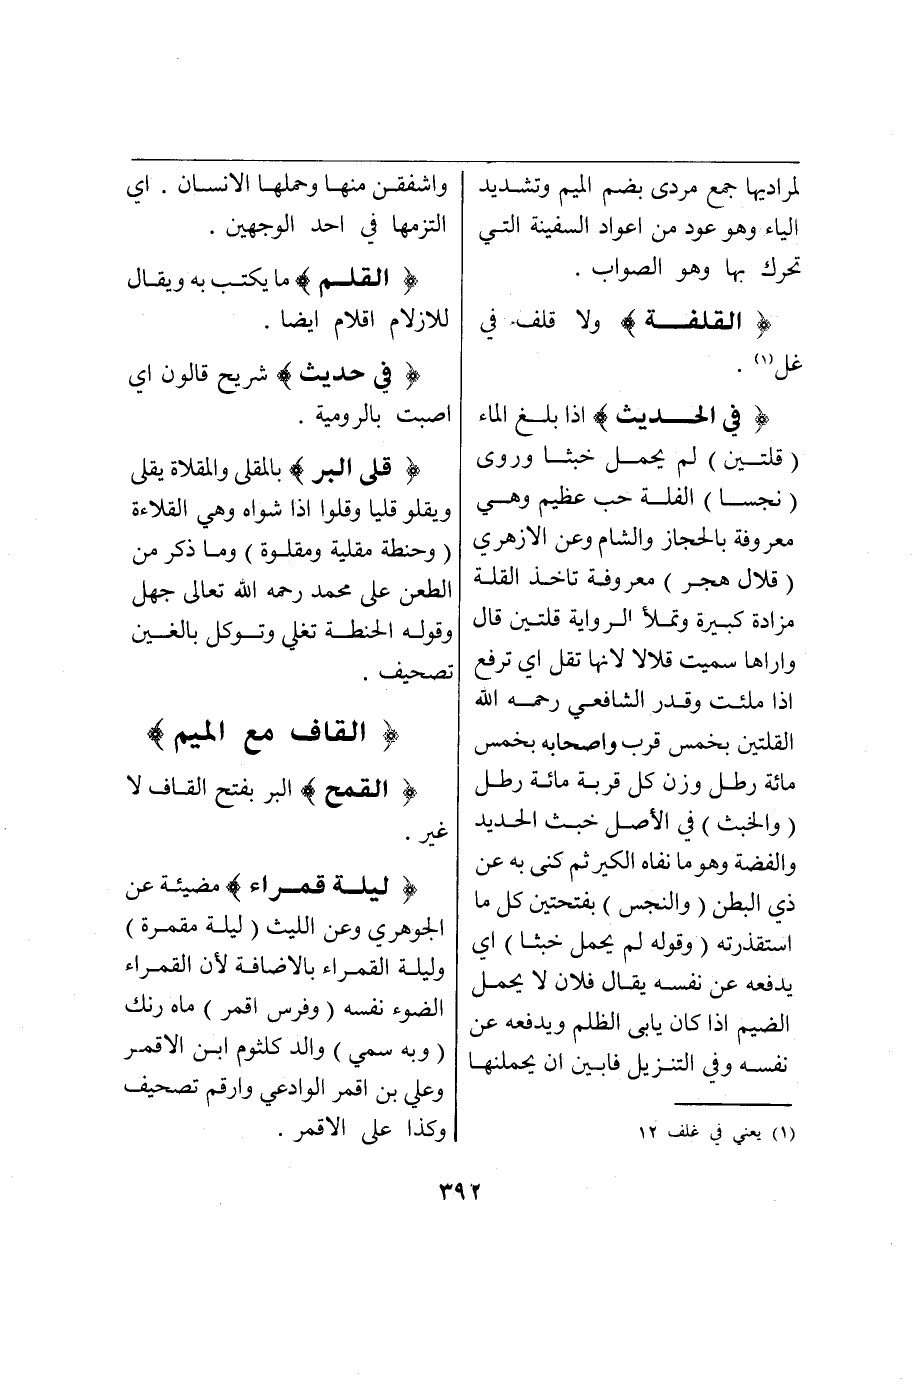 لمراديها جمع مردى بضم الميم وتشديد
الياء وهو عود من اعواد السفينة التي
تحرك بها وهو الصواب .
﴿ القلفة ﴾ ولا قلف في
غل(١) .
﴿ في الحديث ﴾ اذا بلغ الماء
( قلتين ) لم يحمل خبثا وروى
( نجسا ) القلة حب عظيم وهي
معروفة بالحجاز والشام وعن الازهري
( قلال هجر ) معروفة تاخذ القلة
مزادة كبيرة وتملأ الرواية قلتين قال
واراها سميت قلالا لانها تقل اي ترفع
اذا ملئت وقدر الشافعي رحمه الله
القلتين بخمس قرب واصحابه بخمس
مائة رطل وزن كل قربة مائة رطل
( والخبث ) في الأصل خبث الحديد
والفضة وهو ما نفاه الكير ثم كنى به عن
ذي البطن ( والنجس ) بفتحتين كل ما
استقذرته ( وقوله لم يحمل خبثا ) اي
يدفعه عن نفسه يقال فلان لا يحمل
الضيم اذا كان يابى الظلم ويدفعه عن
نفسه وفي التنزيل فابين ان يحملنها
(١) يعني في غلف ١٢
واشفقن منها وحملها الانسان . اي
التزمها في احد الوجهين .
﴿ القلم ﴾ ما يكتب به ويقال
للازلام اقلام ايضا .
﴿ في حديث ﴾ شريح قالون اي
اصبت بالرومية .
﴿ قلى البر ﴾ بالمقلى والمقلاة يقلى
ويقلو قليا وقلوا اذا شواه وهي القلاءة
( وحنطة مقلية ومقلوة ) وما ذكر من
الطعن على محمد رحمه الله تعالى جهل
وقوله الحنطة تغلي وتوكل بالغين
تصحيف .
﴿ القاف مع الميم ﴾
﴿ القمح ﴾ البر بفتح القاف لا
غير .
﴿ ليلة قمراء ﴾ مضيئة عن
الجوهري وعن الليث ( ليلة مقمرة )
وليلة القمراء بالاضافة لأن القمراء
الضوء نفسه ( وفرس اقمر ) ماه رنك
( وبه سمي ) والد كلثوم ابن الاقمر
وعلي بن اقمر الوادعي وارقم تصحيف
وكذا على الاقمر .
٣٩٢